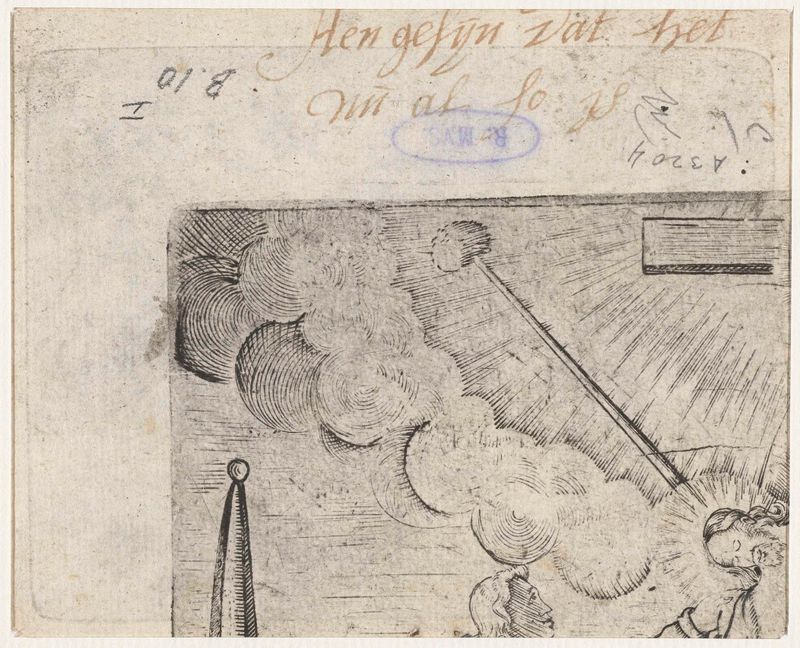 Hen gesyn dat het
nu al so is
B.10
I
R. MVS
A3204